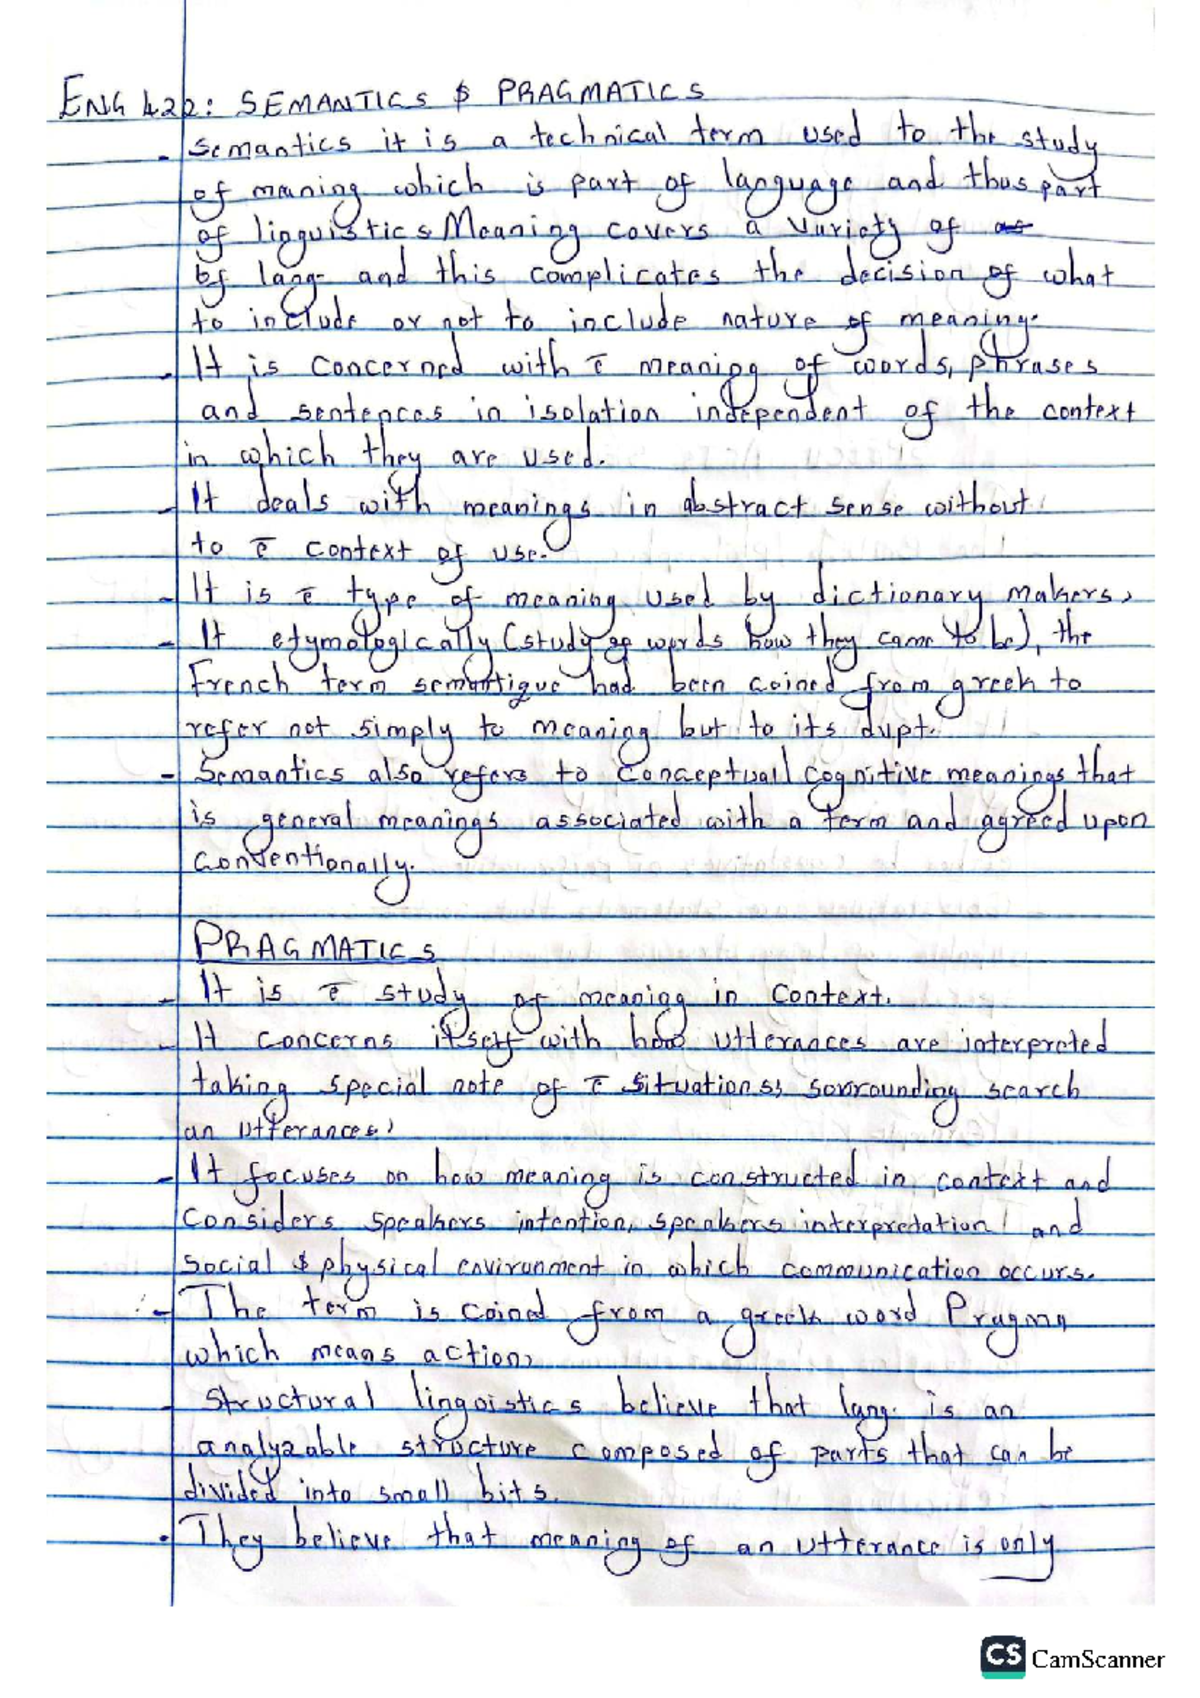 ENG 422: SEMANTICS & PRAGMATICS
- Semantics it is a technical term used to the study
of meaning which is part of language and thus part
of linguistics Meaning covers a variety of as
of lang- and this complicates the decision of what
to include or not to include nature of meaning.
- It is concerned with τ meaning of words, phrases
and sentences in isolation independent of the context
in which they are used.
- It deals with meanings in abstract sense without
to τ context of use.
- It is τ type of meaning used by dictionary makers,
- It etymologically (study of words how they came to be), the
French term semantique had been coined from greek to
refer not simply to meaning but to its dvpt.
- Semantics also refers to conceptual cognitive meanings that
is general meanings associated with a term and agreed upon
conventionally.
PRAGMATICS
- It is τ study of meaning in context.
- It concerns itself with how utterances are interpreted
taking special note of τ situations, sorrounding search
an utterances,
- It focuses on how meaning is constructed in context and
considers speakers intention, speakers interpretation and
social & physical environment in which communication occurs.
- The term is coined from a greek word Pragma
which means action,
- Structural lingoistics believe that lang. is an
analyzable structure composed of parts that can be
divided into small bits.
• They believe that meaning of an utterance is only
CS CamScanner